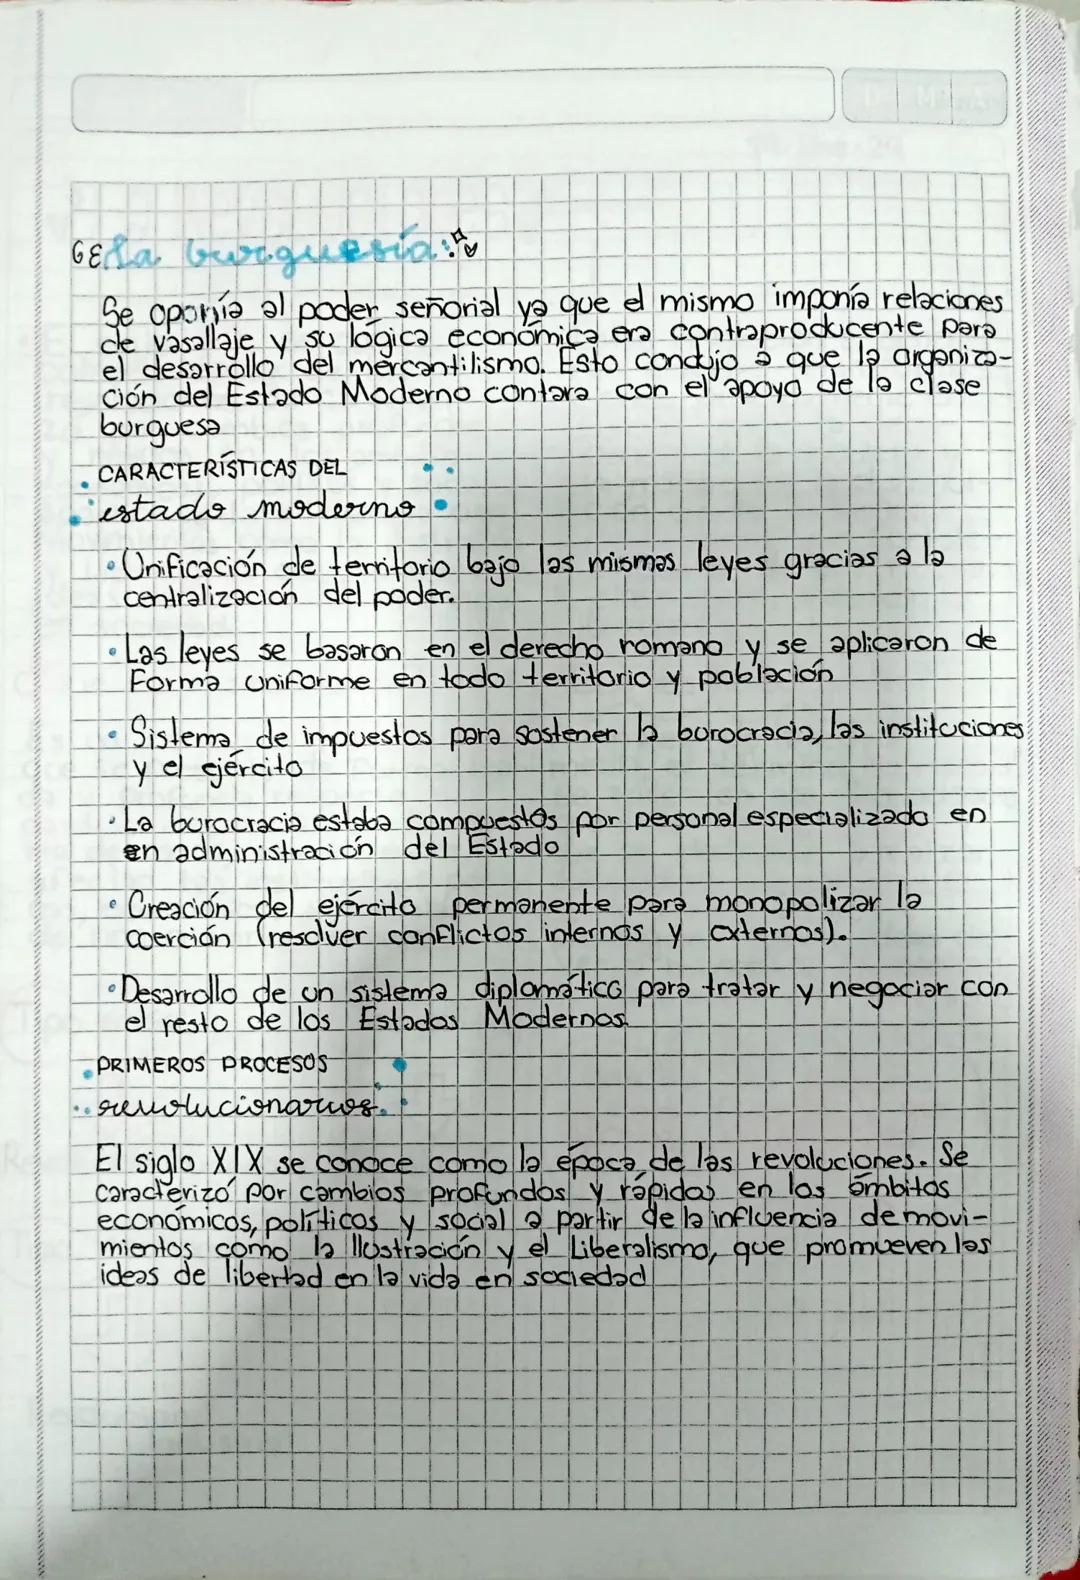 La burguesía:
Se oponía al poder señorial ya que el mismo imponía relaciones
de vasallaje y su lógica económica era contraproducente para
el desarrollo del mercantilismo. Esto condujo a que la organiza-
ción del Estado Moderno contara con el apoyo de la clase
burguesa
CARACTERÍSTICAS DEL
estado moderno
• Unificación de territorio bajo las mismas leyes gracias a la
centralización del poder.
• Las leyes se basaron en el derecho romano y se aplicaron de
Forma uniforme en todo territorio y población
• Sistema de impuestos para sostener la burocracia, las instituciones
y el ejército
• La burocracia estaba compuestos por personal especializado en
en administración del Estado
• Creación del ejército permanente para monopolizar la
coerción (resolver conflictos internos y externos).
• Desarrollo de un sistema diplomático para tratar y negociar con
el resto de los Estados Modernos.
PRIMEROS PROCESOS
revolucionarios.
El siglo XIX se conoce como la época de las revoluciones. Se
caracterizó por cambios profundos y rápidos en los ámbitos
económicos, políticos y social a partir de la influencia de movi-
mientos como la Ilustración y el Liberalismo, que promueven las
ideas de libertad en la vida en sociedad